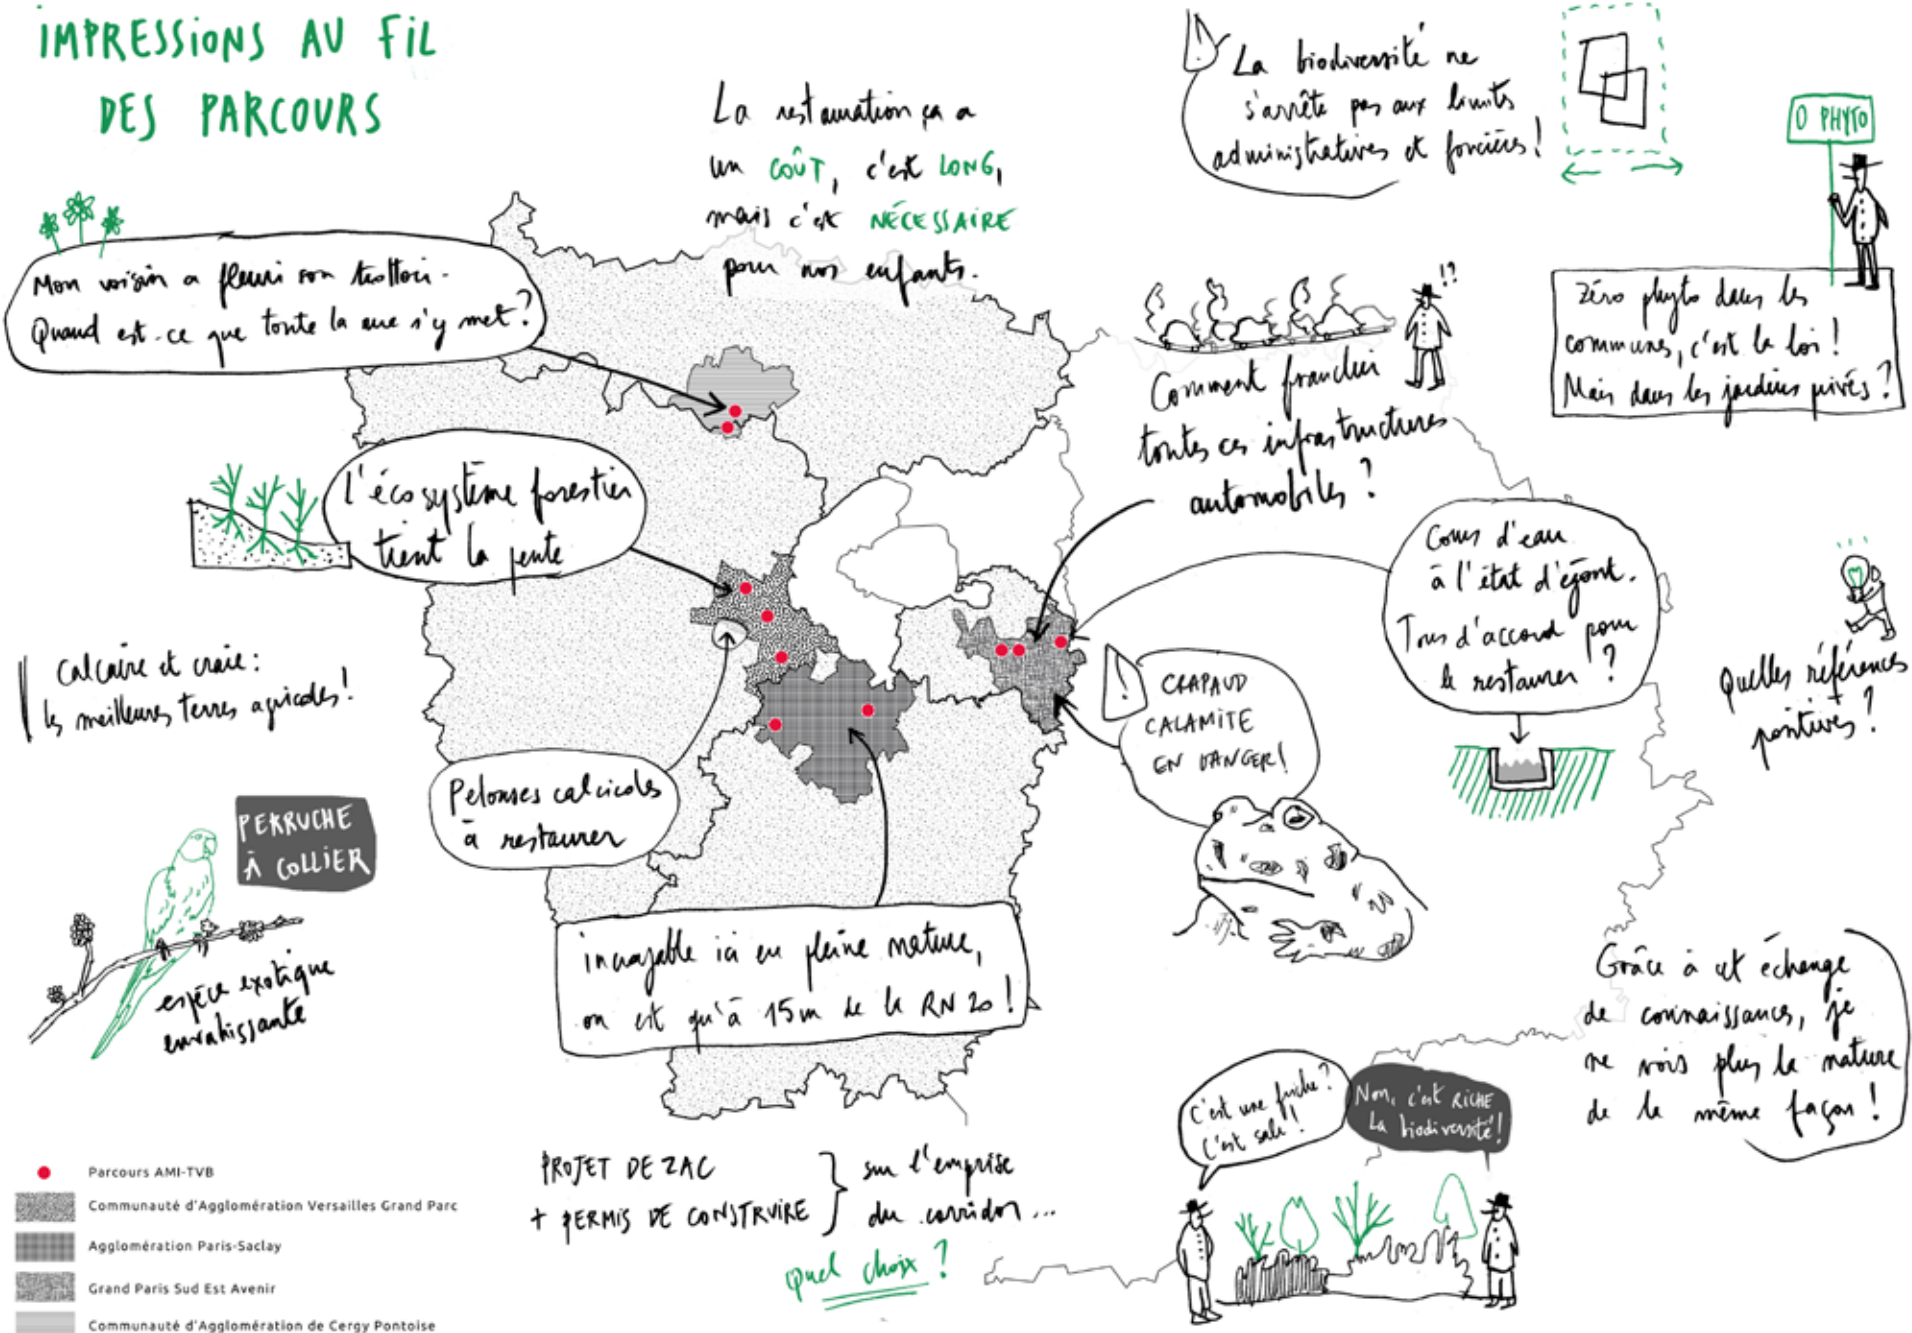 IMPRESSIONS AU FIL
DES PARCOURS
La restauration ça a
un COÛT, c'est LONG,
mais c'est NÉCESSAIRE
pour nos enfants.
La biodiversité ne
s'arrête pas aux limites
administratives et foncières !
0 PHYTO
Zéro phyto dans les
communes, c'est la loi !
Mais dans les jardins privés ?
Mon voisin a fleuri son trottoir.
Quand est-ce que toute la rue s'y met ?
!?
Comment franchir
toutes ces infrastructures
automobiles ?
L'écosystème forestier
tient la pente
Cours d'eau
à l'état d'égout.
Tous d'accord pour
le restaurer ?
Calcaire et craie :
les meilleures terres agricoles !
Quelles références
positives ?
!
CRAPAUD
CALAMITE
EN DANGER !
Pelouses calcicoles
à restaurer
PERRUCHE
À COLLIER
espèce exotique
envahissante
incroyable ici en pleine nature,
on est qu'à 15m de la RN 20 !
Grâce à cet échange
de connaissances, je
ne vois plus la nature
de la même façon !
C'est une friche ?
C'est sale !
Non, c'est RICHE
La biodiversité !
PROJET DE ZAC
+ PERMIS DE CONSTRUIRE
sur l'emprise
du corridor ...
quel choix ?
Parcours AMI-TVB
Communauté d'Agglomération Versailles Grand Parc
Agglomération Paris-Saclay
Grand Paris Sud Est Avenir
Communauté d'Agglomération de Cergy Pontoise